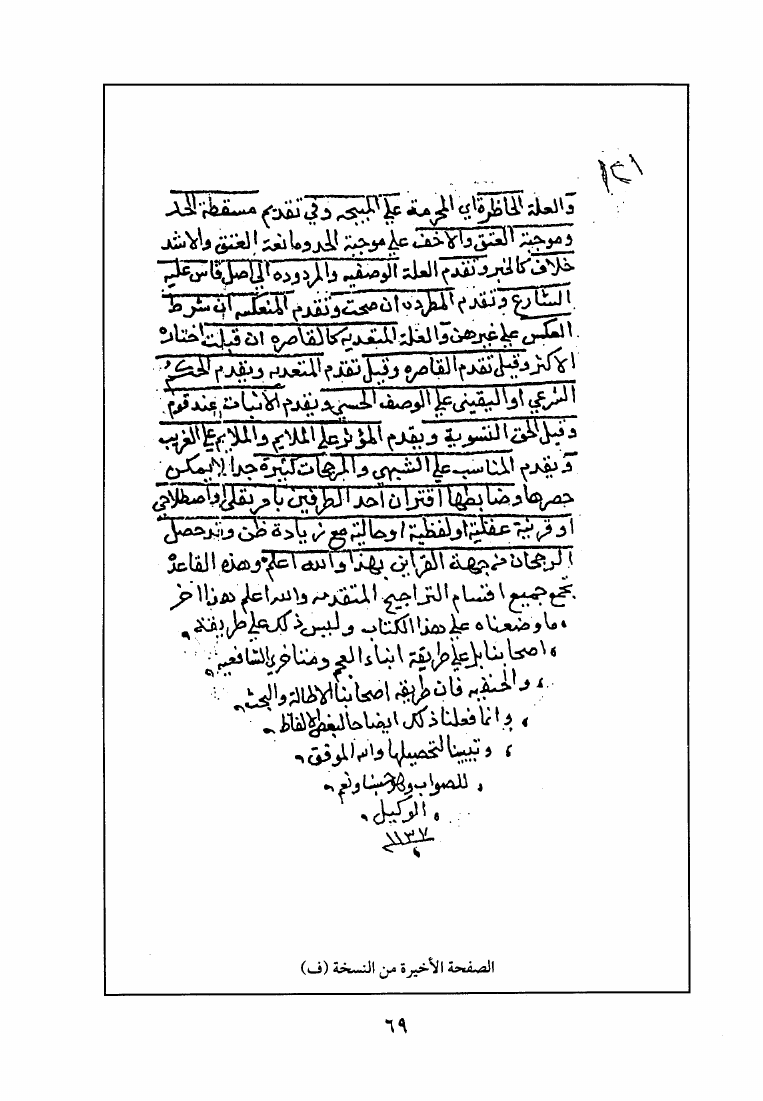 ١٢١
والعلة الحاظرة اي المحرمة على المبيحه وفي تقديم مسقطة الحد
وموجبة العتق والاخف على موجبة الحد ومانعة العتق والاشد
خلاف كالخبر وتقدم العلة الوصفيه والمردوده الى اصل قاس عليه
الشارع وتقدم المطرده ان صحت وتقدم المنعكسه ان شرط
العكس على غيرهن والعلة المتعديه كالقاصره ان قبلت اختاره
الاكثر وقيل تقدم القاصره وقيل تقدم المتعديه ويقدم الحكم
الشرعي او اليقيني على الوصف الحسي ويقدم الاثبات عند قوم
وقيل الحق التسوية ويقدم المؤثر على الملايم والملايم على الغريب
ويقدم المناسب على الشبهي والمرجحات كثيرة جدا لا يمكن
حصرها وضابطها اقتران احد الطرفين بامر نقلي او اصطلاحي
او قرينة عقلية او لفظية او حالية مع زيادة ظن وقد حصل
الرجحان من جهة القراين بهذا والله اعلم وهذه القاعدة
تجمع جميع اقسام التراجيح المتقدمه والله اعلم هذا اخر
ما وضعناه على هذا الكتاب وليس ذلك على طريقة
اصحابنا بل على طريقة ابناء العجم ومتاخري الشافعيه
والحنفيه فان طريقه اصحابنا الاطالة والبحث
وانما فعلنا ذلك ايضاحا لبعض الالفاظ
وتبيينا لتحصيلها والله الموفق
للصواب وهو حسبنا ونعم
الوكيل
١١٣٧
الصفحة الأخيرة من النسخة (ف)
٦٩